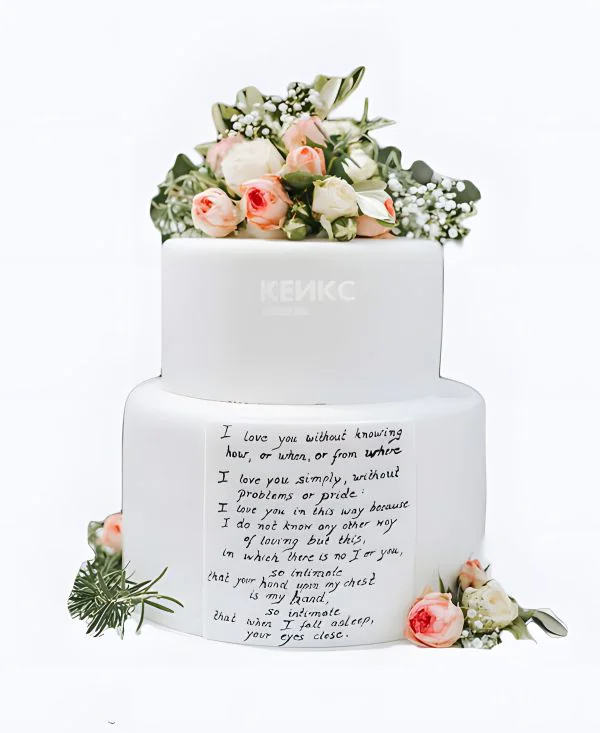 КЕЙКС
I love you without knowing
how, or when, or from where
I love you simply, without
problems or pride:
I love you in this way because
I do not know any other way
of loving but this,
in which there is no I or you,
so intimate
that your hand upon my chest
is my hand,
so intimate
that when I fall asleep,
your eyes close.